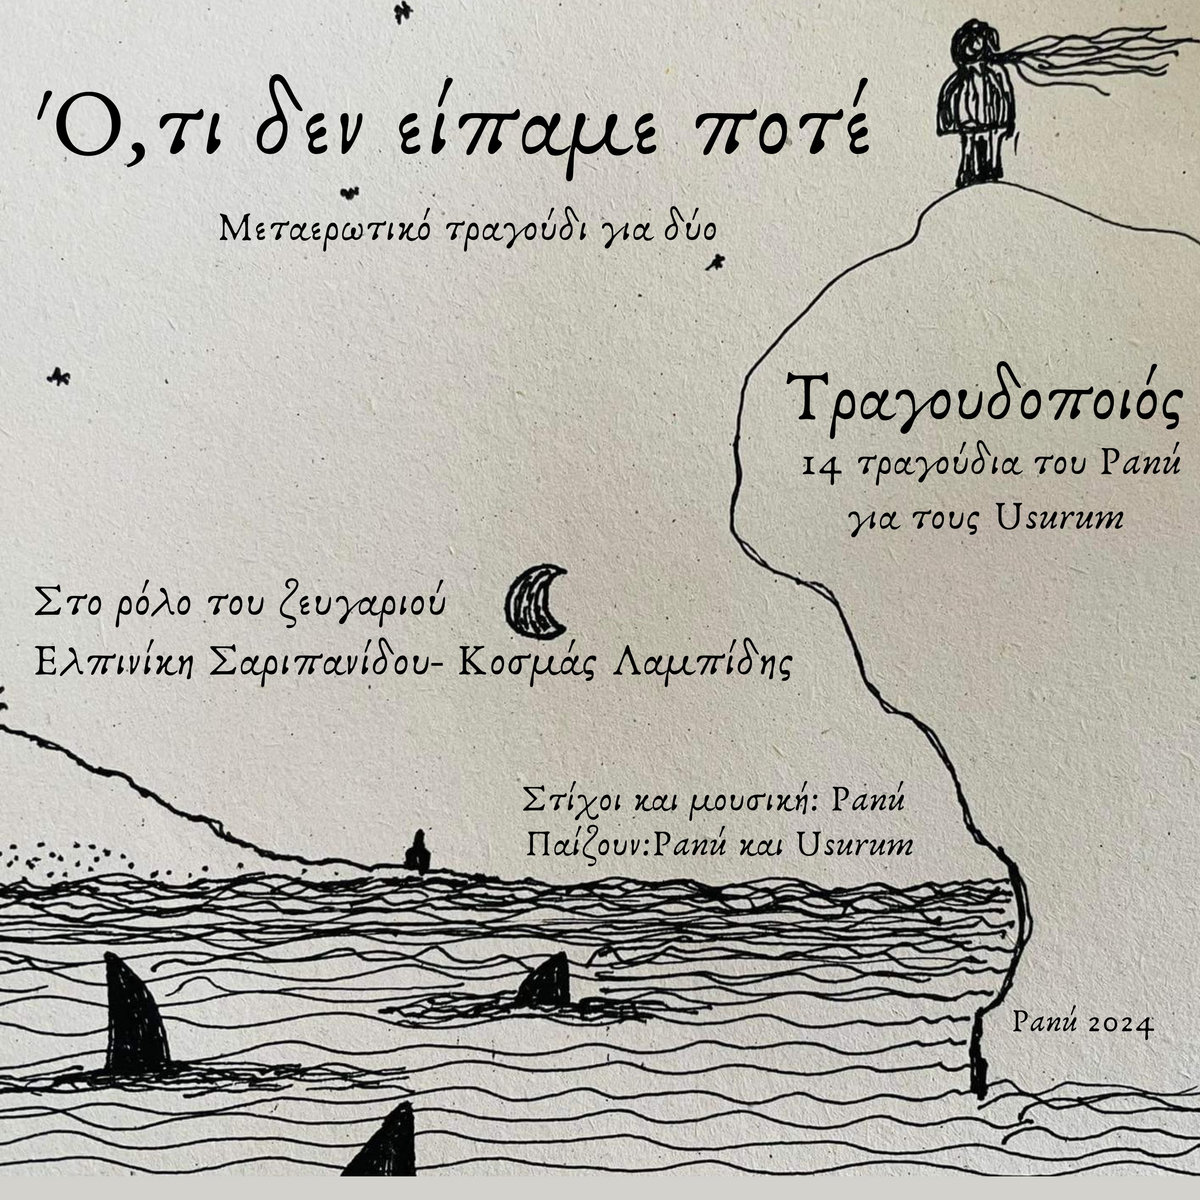 Ό,τι δεν είπαμε ποτέ
Μεταερωτικό τραγούδι για δύο
Τραγουδοποιός
14 τραγούδια του Panú
για τους Usurum
Στο ρόλο του ζευγαριού
Ελπινίκη Σαριπανίδου- Κοσμάς Λαμπίδης
Στίχοι και μουσική: Panú
Παίζουν:Panú και Usurum
Panú 2024